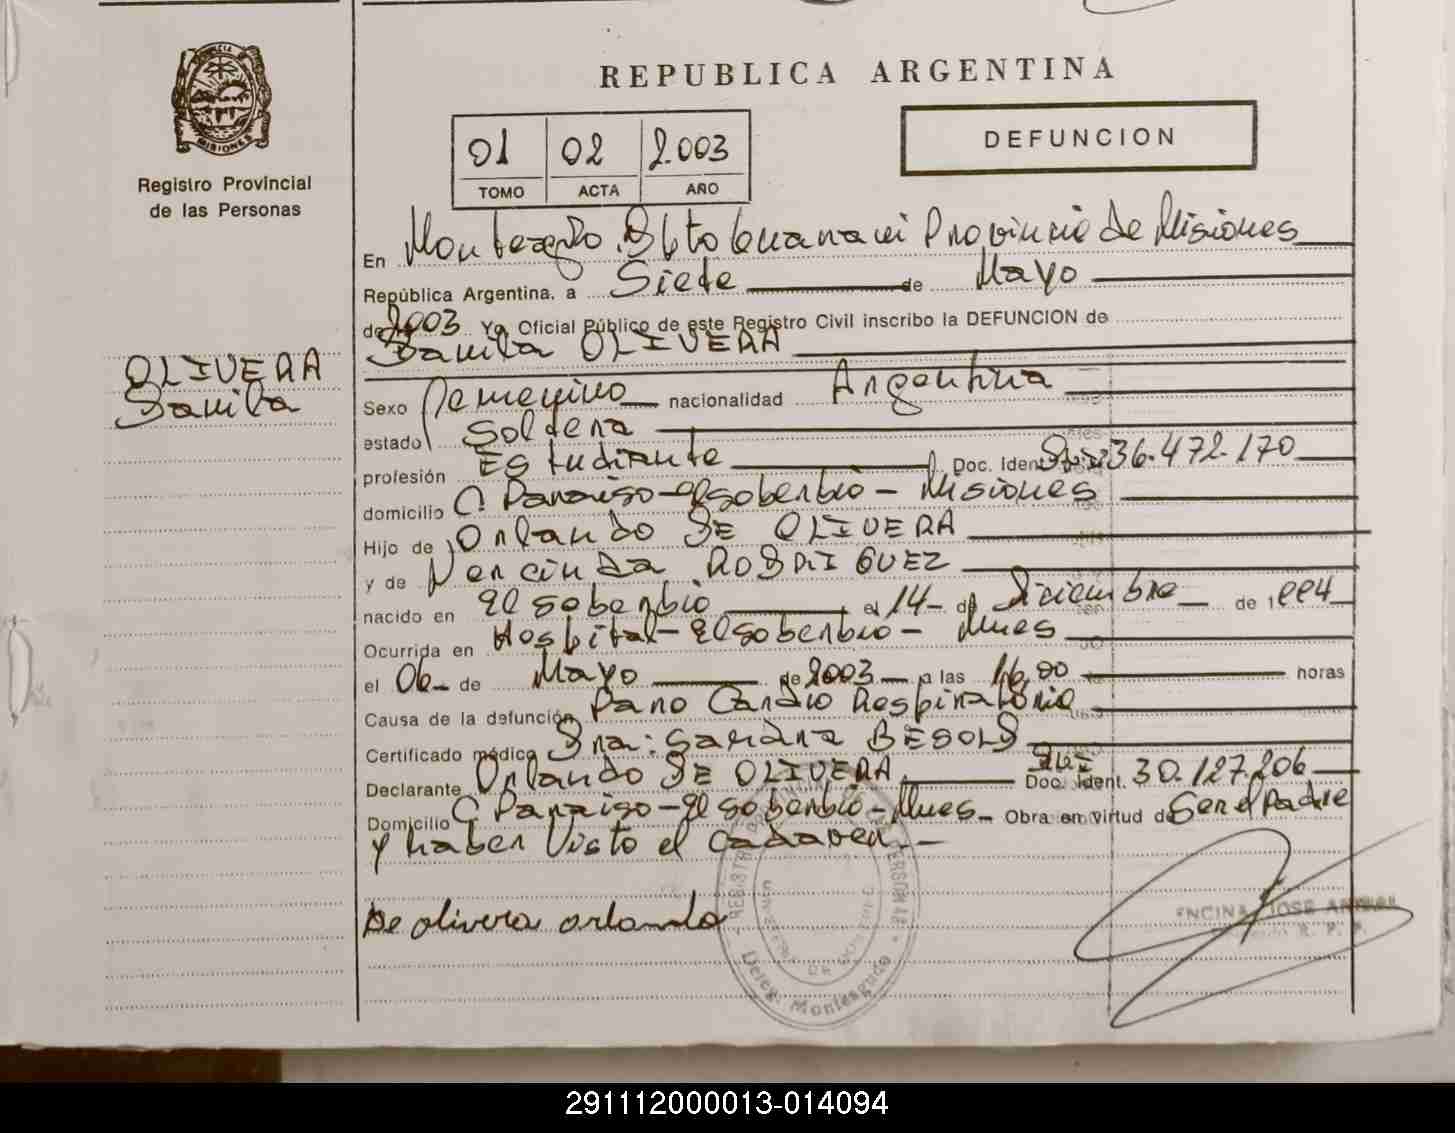 REPUBLICA ARGENTINA
01 02 2.003
TOMO ACTA AÑO
DEFUNCION
MISIONES
Registro Provincial
de las Personas
OLIVERA
Danila
En Monteagudo Dpto Guarani Provincia de Misiones
República Argentina, a Siete de Mayo
de 2003 Yo Oficial Público de este Registro Civil inscribo la DEFUNCION de
Danila OLIVERA
Sexo Femenino nacionalidad Argentina
estado Soltera
profesión Estudiante Doc. Ident. 36.472.170
domicilio C. Paraiso - El Soberbio - Misiones
Hijo de Orlando DE OLIVERA
y de RODRIGUEZ
nacido en El Soberbio el 14 - de Diciembre de 1994
Ocurrida en Hospital - El Soberbio - Mnes
el 06 - de Mayo de 2003 a las 16,00 horas
Causa de la defunción Paro Cardio Respiratorio
Certificado médico Dra:
Declarante Orlando DE OLIVERA Doc. Ident. 30.127.206
Domicilio C Paraiso - El Soberbio - Mnes - Obra en virtud de Ser el Padre
y haber Visto el Cadaver. -
De olivera orlando
ENCINA JOSE
Deleg. Monteagudo
291112000013-014094